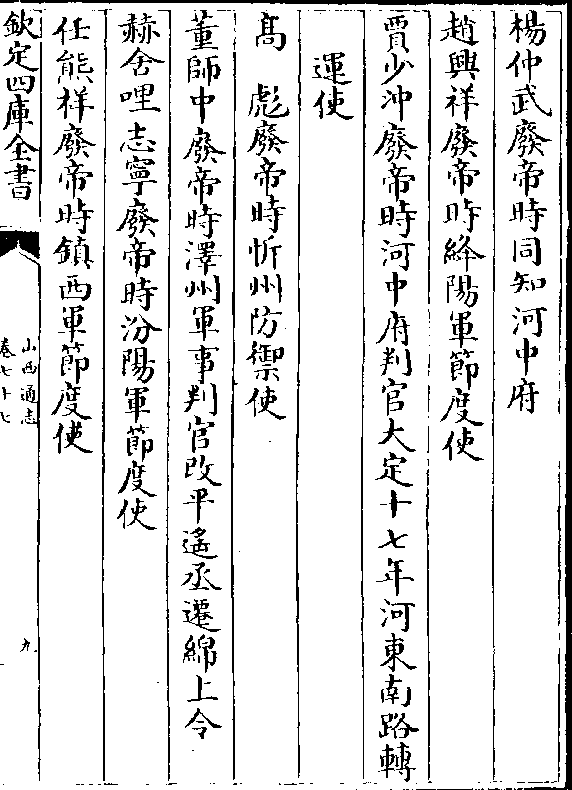 楊仲武廢帝時同知河中府
趙興祥廢帝時絳陽軍節度使
賈少沖廢帝時河中府判官大定十七年河東南路轉
運使
髙　彪廢帝時忻州防禦使
董師中廢帝時澤州軍事判官改平遙丞遷綿上令
赫舍哩志寧廢帝時汾陽軍節度使
任熊祥廢帝時鎮西軍節度使
欽定四庫全書
山西通志
卷七十七
九